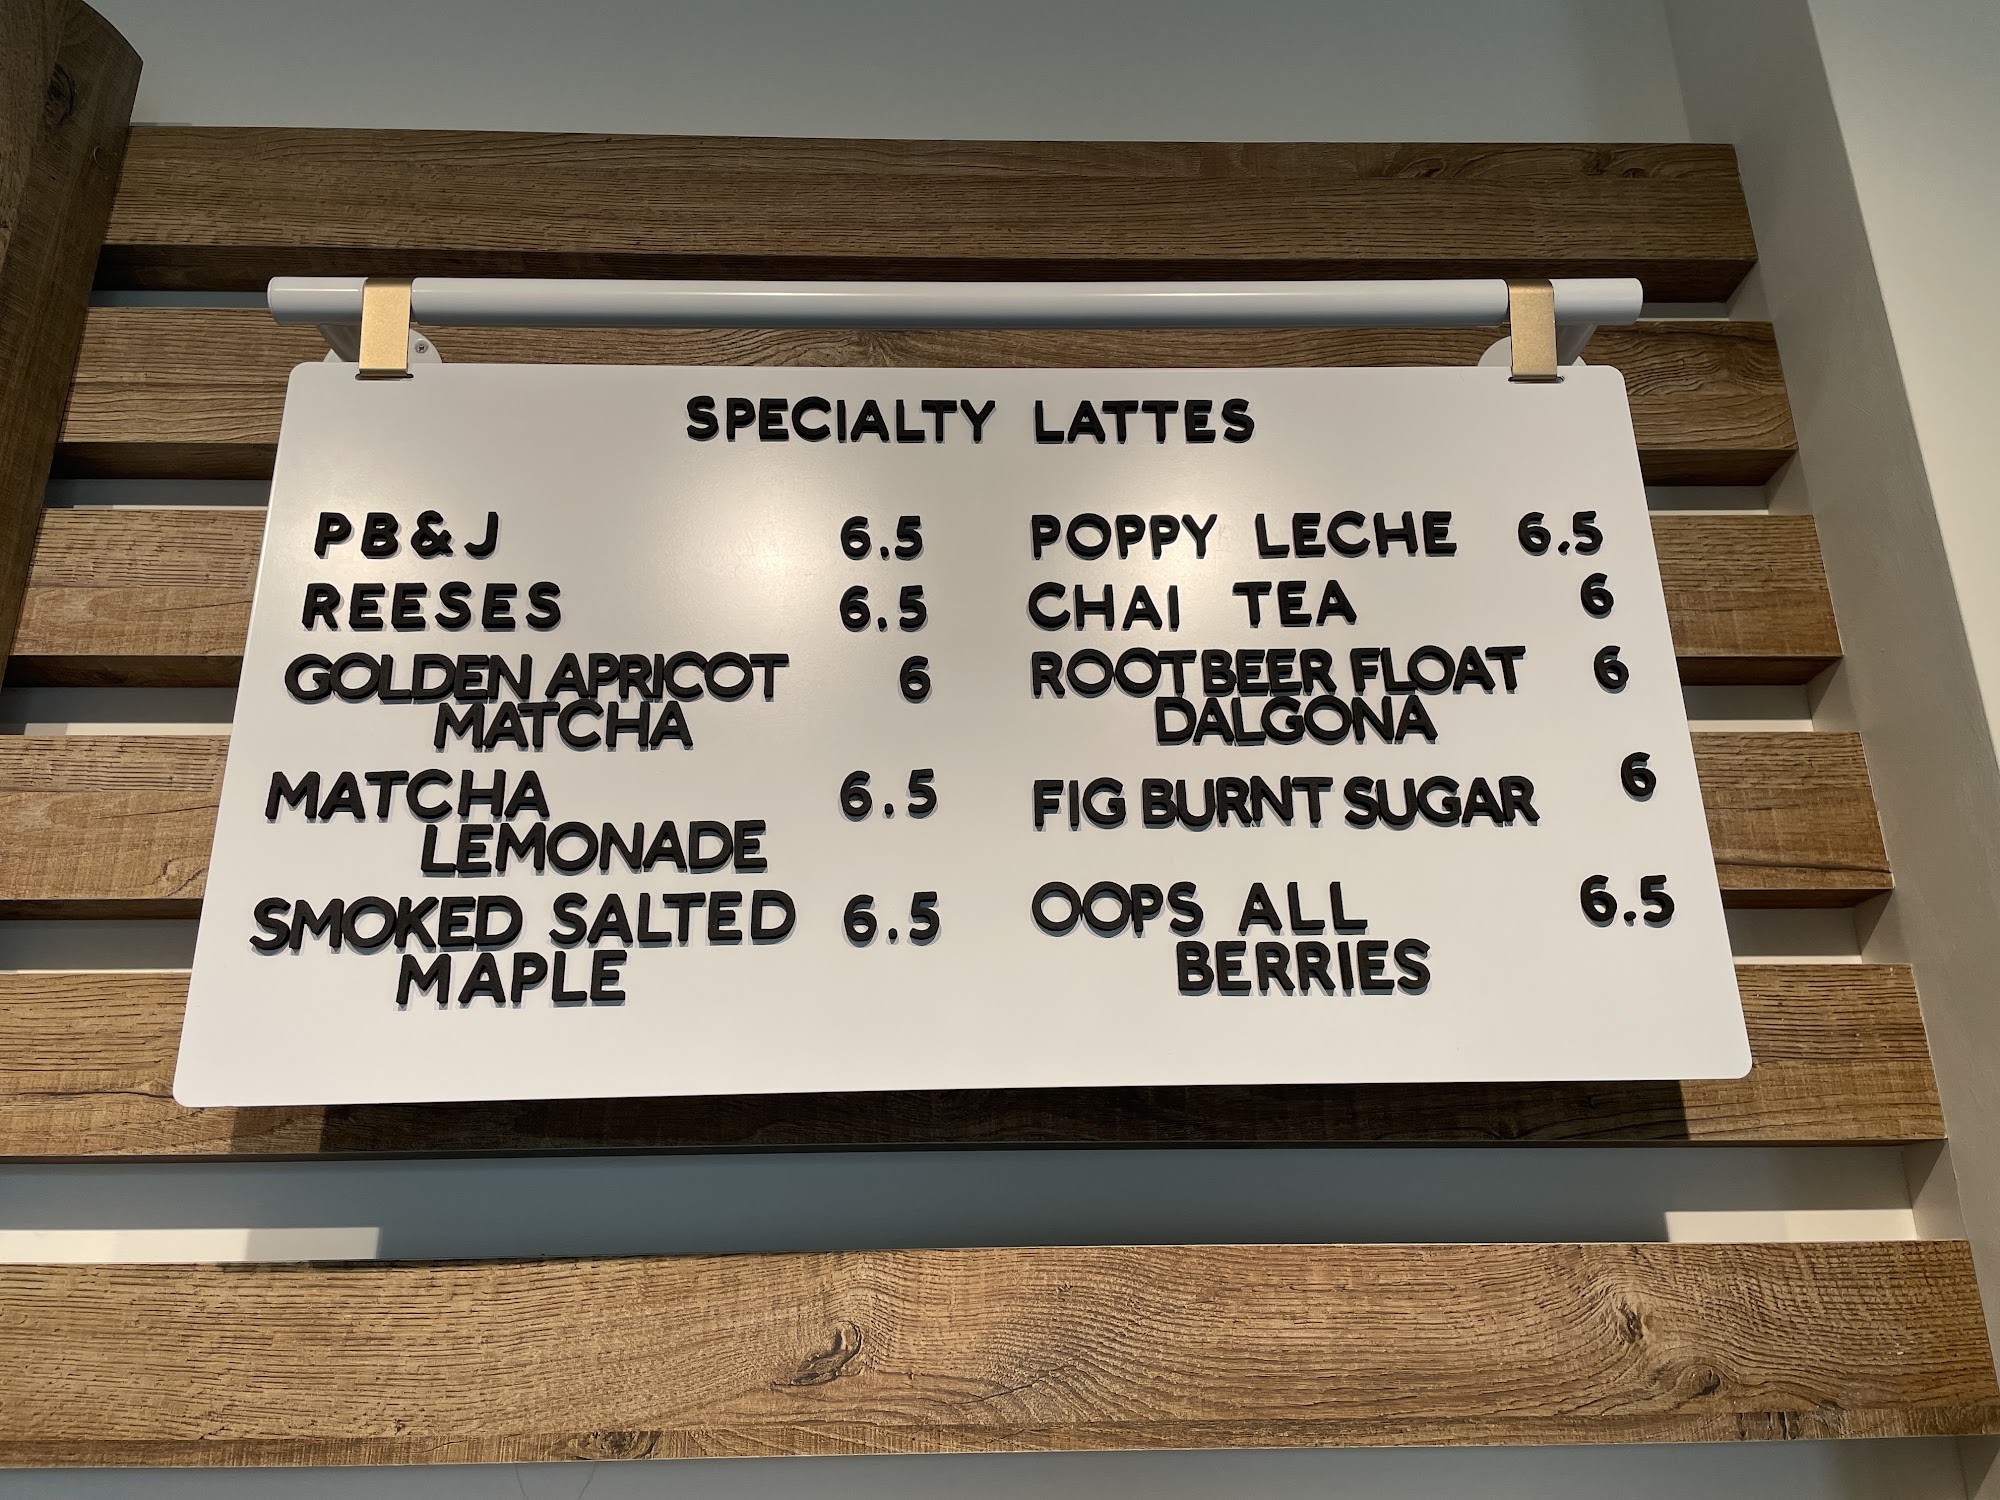 SPECIALTY LATTES
PB&J 6.5
REESES 6.5
GOLDEN APRICOT 6
MATCHA
MATCHA 6.5
LEMONADE
SMOKED SALTED 6.5
MAPLE
POPPY LECHE 6.5
CHAI TEA 6
ROOTBEER FLOAT 6
DALGONA
FIG BURNT SUGAR 6
OOPS ALL 6.5
BERRIES